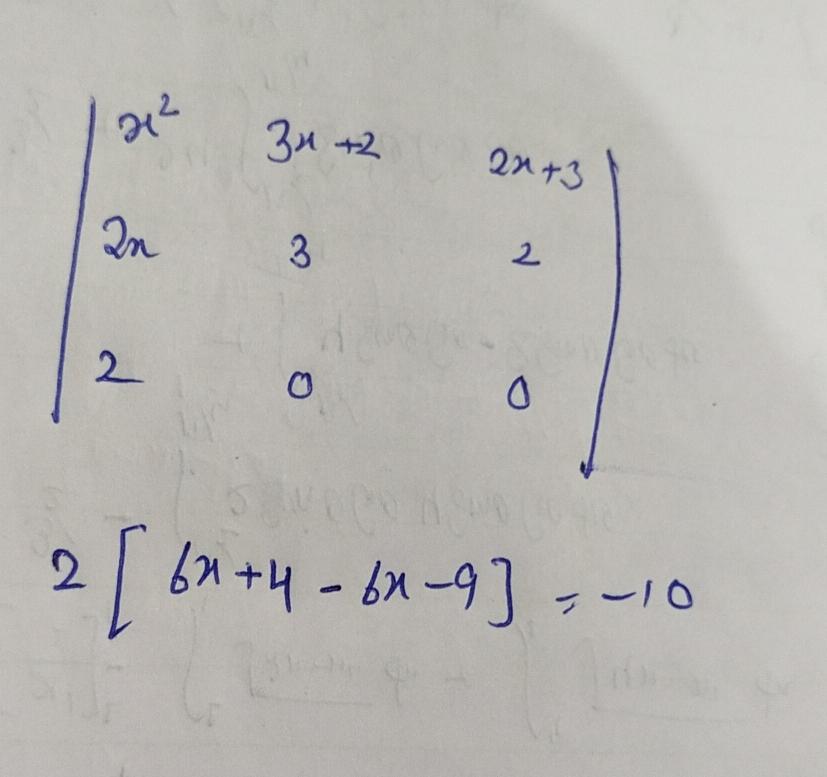 | x² 3x+2 2x+3 |
| 2x 3 2 |
| 2 0 0 |
2 [ 6x+4 - 6x-9 ] = -10